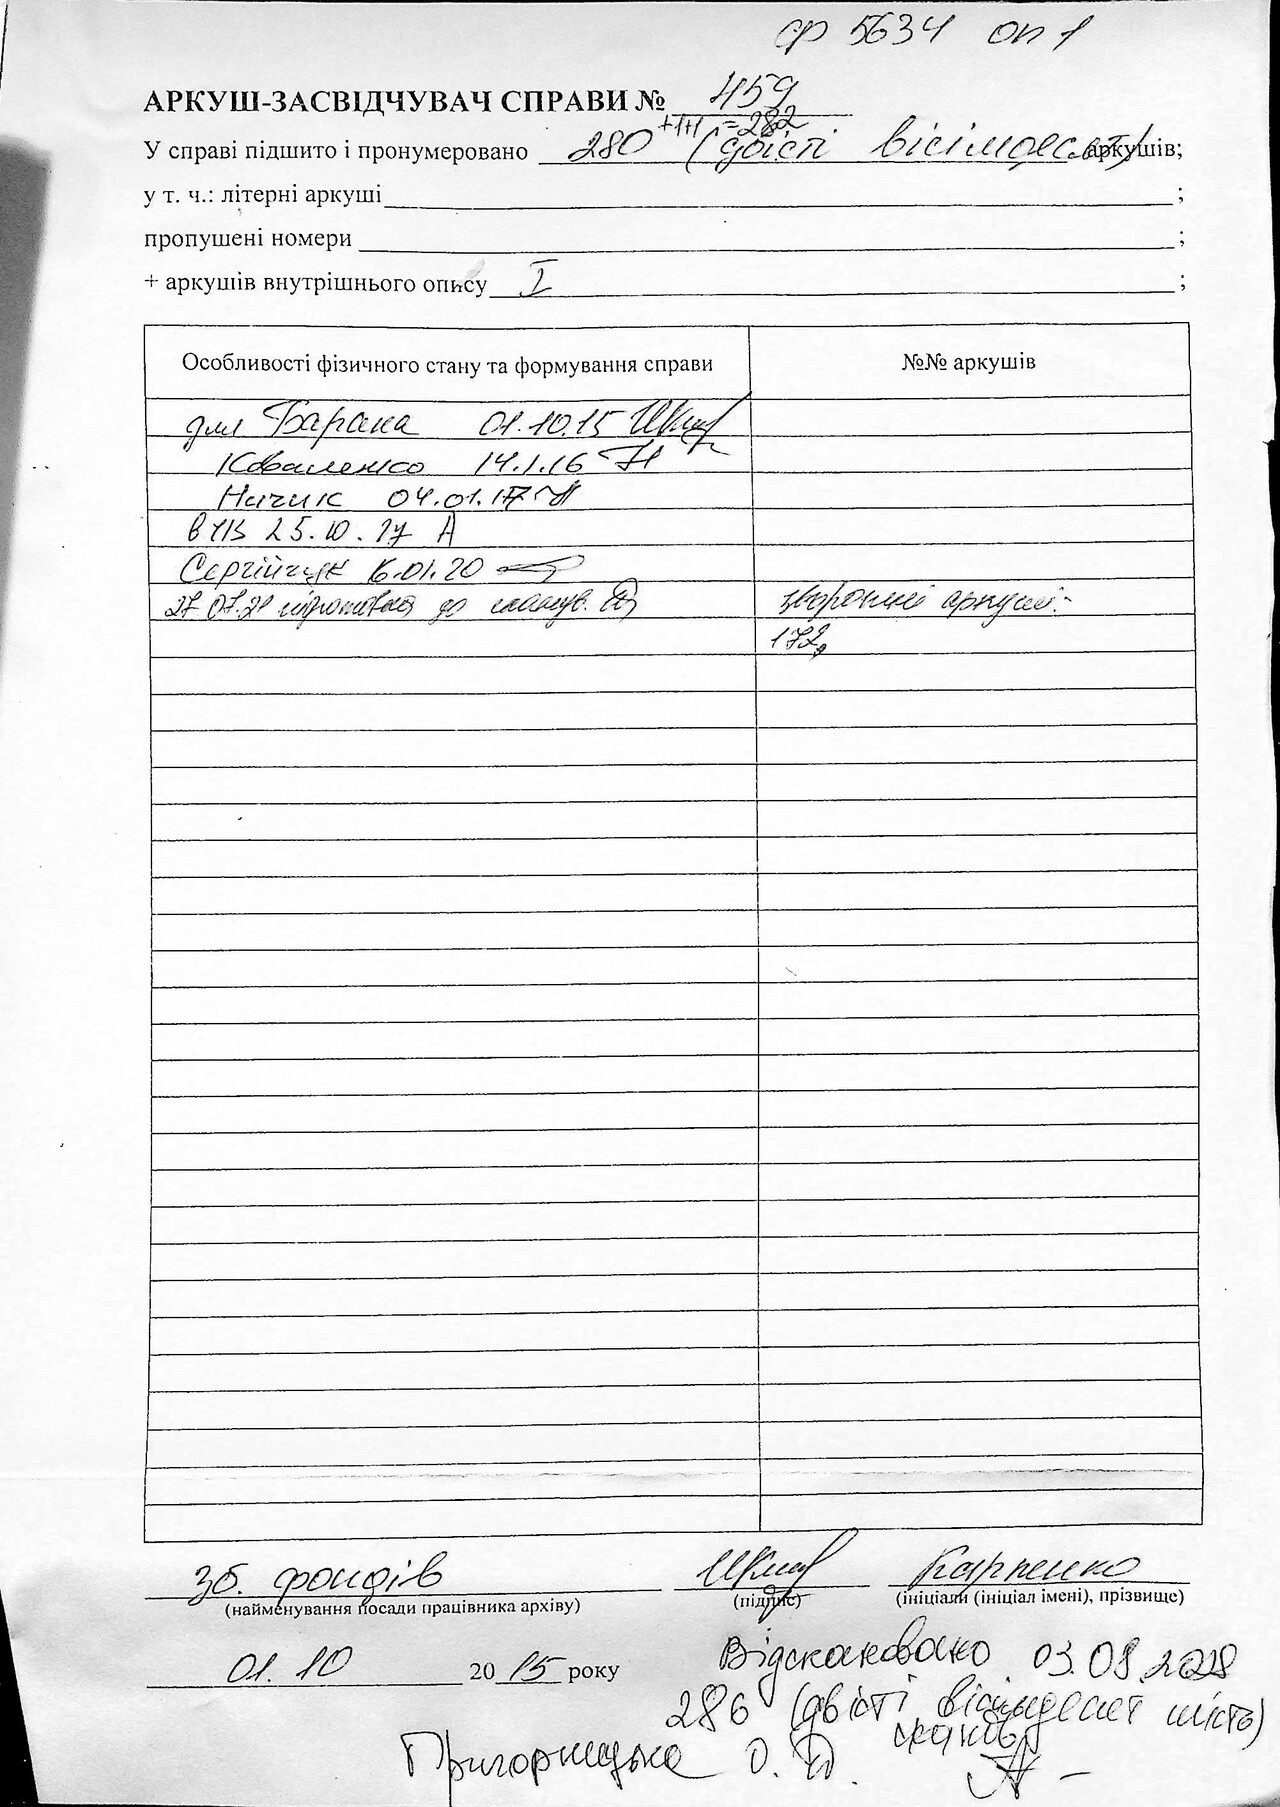 ф 5634 оп 1
АРКУШ-ЗАСВІДЧУВАЧ СПРАВИ № 459
+1+1 = 282
У справі підшито і пронумеровано 280 (двісті вісімдесят) аркушів;
у т. ч.: літерні аркуші ;
пропущені номери ;
+ аркушів внутрішнього опису I ;
Особливості фізичного стану та формування справи №№ аркушів
для Барана 01.10.15
Коваленко 14.1.16
Ничик 04.01.17
25.10.17
Сергійчук 16.01.20
27.07.21 підготовка до сканув. зворотній аркуші:
172,
зб. фондів Карпенко
(найменування посади працівника архіву) (підпис) (ініціали (ініціал імені), прізвище)
01.10 2015 року
Відскановано 03.08.
286 (двісті вісімдесят шість)
сканів
Пригорницька О.